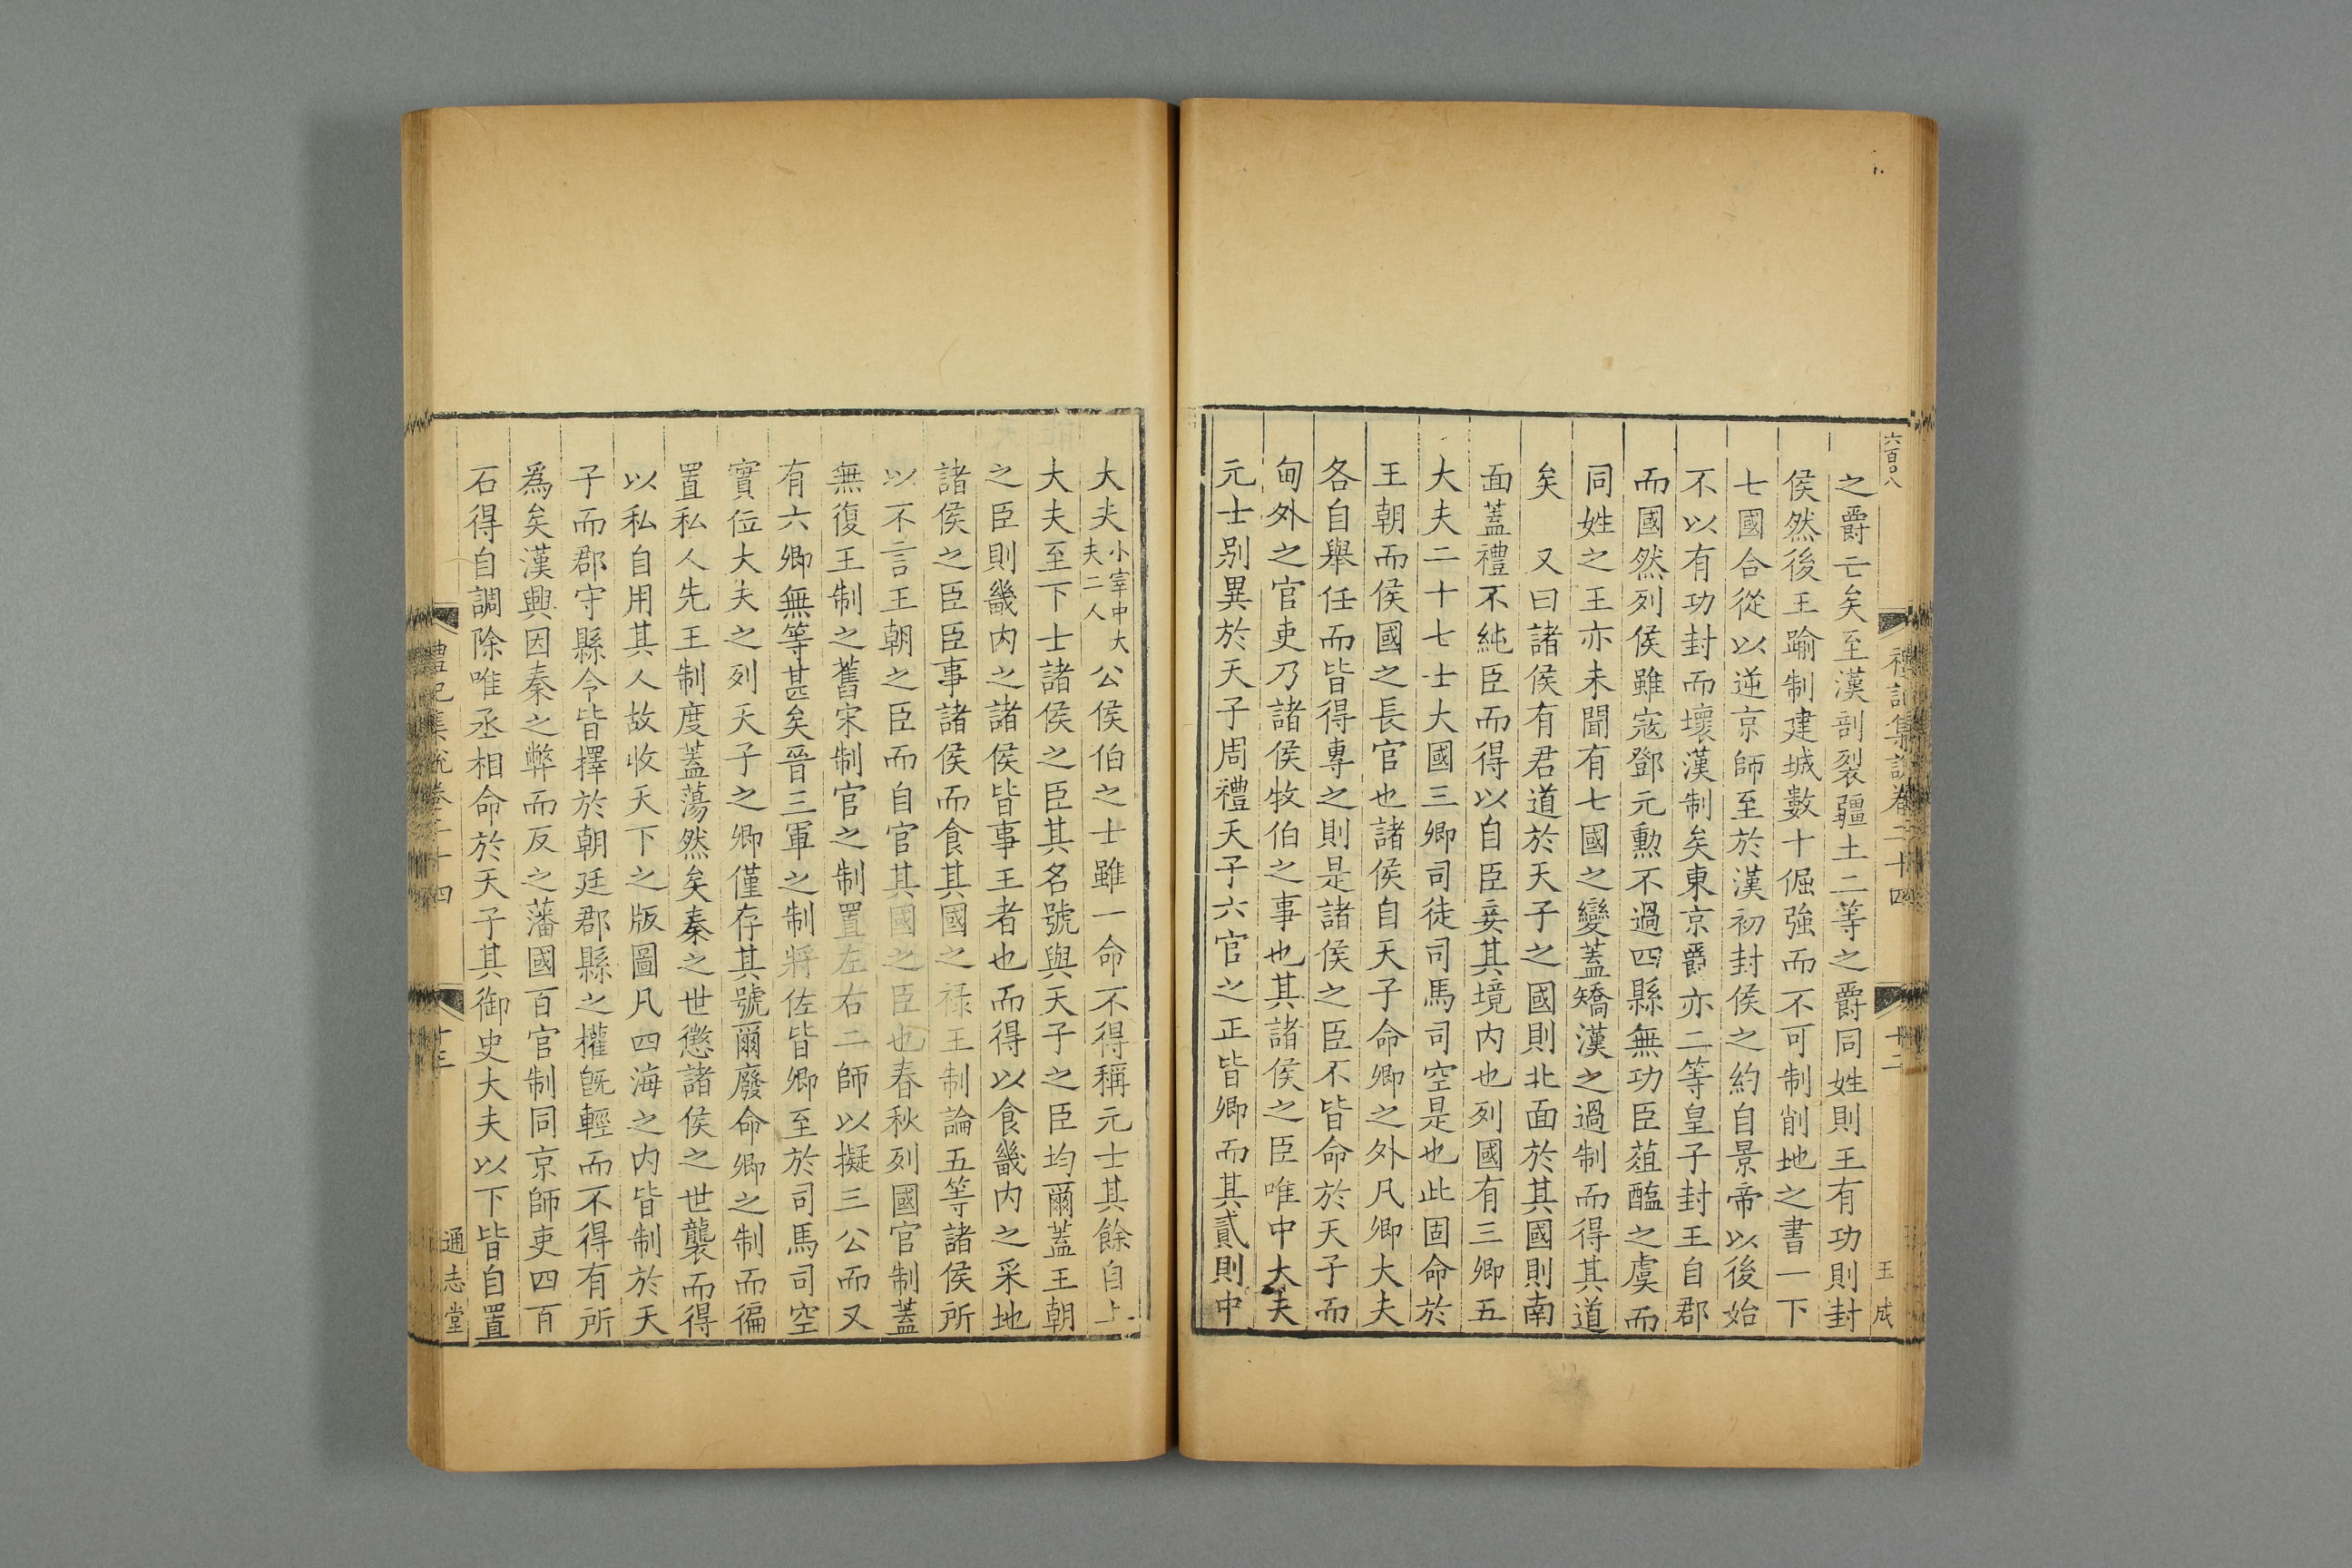 六百八
禮記集說卷二十四
十二
王成
之爵亡矣至漢剖裂疆土二等之爵同姓則王有功則封
侯然後王踰制建城數十倔強而不可制削地之書一下
七國合從以逆京師至於漢初封侯之約自景帝以後始
不以有功封而壞漢制矣東京爵亦二等皇子封王自郡
而國然列侯雖寇鄧元勲不過四縣無功臣葅醢之虞而
同姓之王亦未聞有七國之變蓋矯漢之過制而得其道
矣 又曰諸侯有君道於天子之國則北面於其國則南
面蓋禮不純臣而得以自臣妾其境内也列國有三卿五
大夫二十七士大國三卿司徒司馬司空是也此固命於
王朝而侯國之長官也諸侯自天子命卿之外凡卿大夫
各自舉任而皆得專之則是諸侯之臣不皆命於天子而
甸外之官吏乃諸侯牧伯之事也其諸侯之臣唯中大夫
元士别異於天子周禮天子六官之正皆卿而其貳則中
大夫小宰中大夫二人公侯伯之士雖一命不得稱元士其餘自上
大夫至下士諸侯之臣其名號與天子之臣均爾蓋王朝
之臣則畿内之諸侯皆事王者也而得以食畿内之采地
諸侯之臣臣事諸侯而食其國之禄王制論五等諸侯所
以不言王朝之臣而自官其國之臣也春秋列國官制蓋
無復王制之舊宋制官之制置左右二師以擬三公而又
有六卿無等甚矣晉三軍之制將佐皆卿至於司馬司空
實位大夫之列天子之卿僅存其號爾廢命卿之制而徧
置私人先王制度蓋蕩然矣秦之世懲諸侯之世襲而得
以私自用其人故收天下之版圖凡四海之内皆制於天
子而郡守縣令皆擇於朝廷郡縣之權旣輕而不得有所
爲矣漢興因秦之弊而反之藩國百官制同京師吏四百
石得自調除唯丞相命於天子其御史大夫以下皆自置
禮記集說卷二十四
十三
通志堂